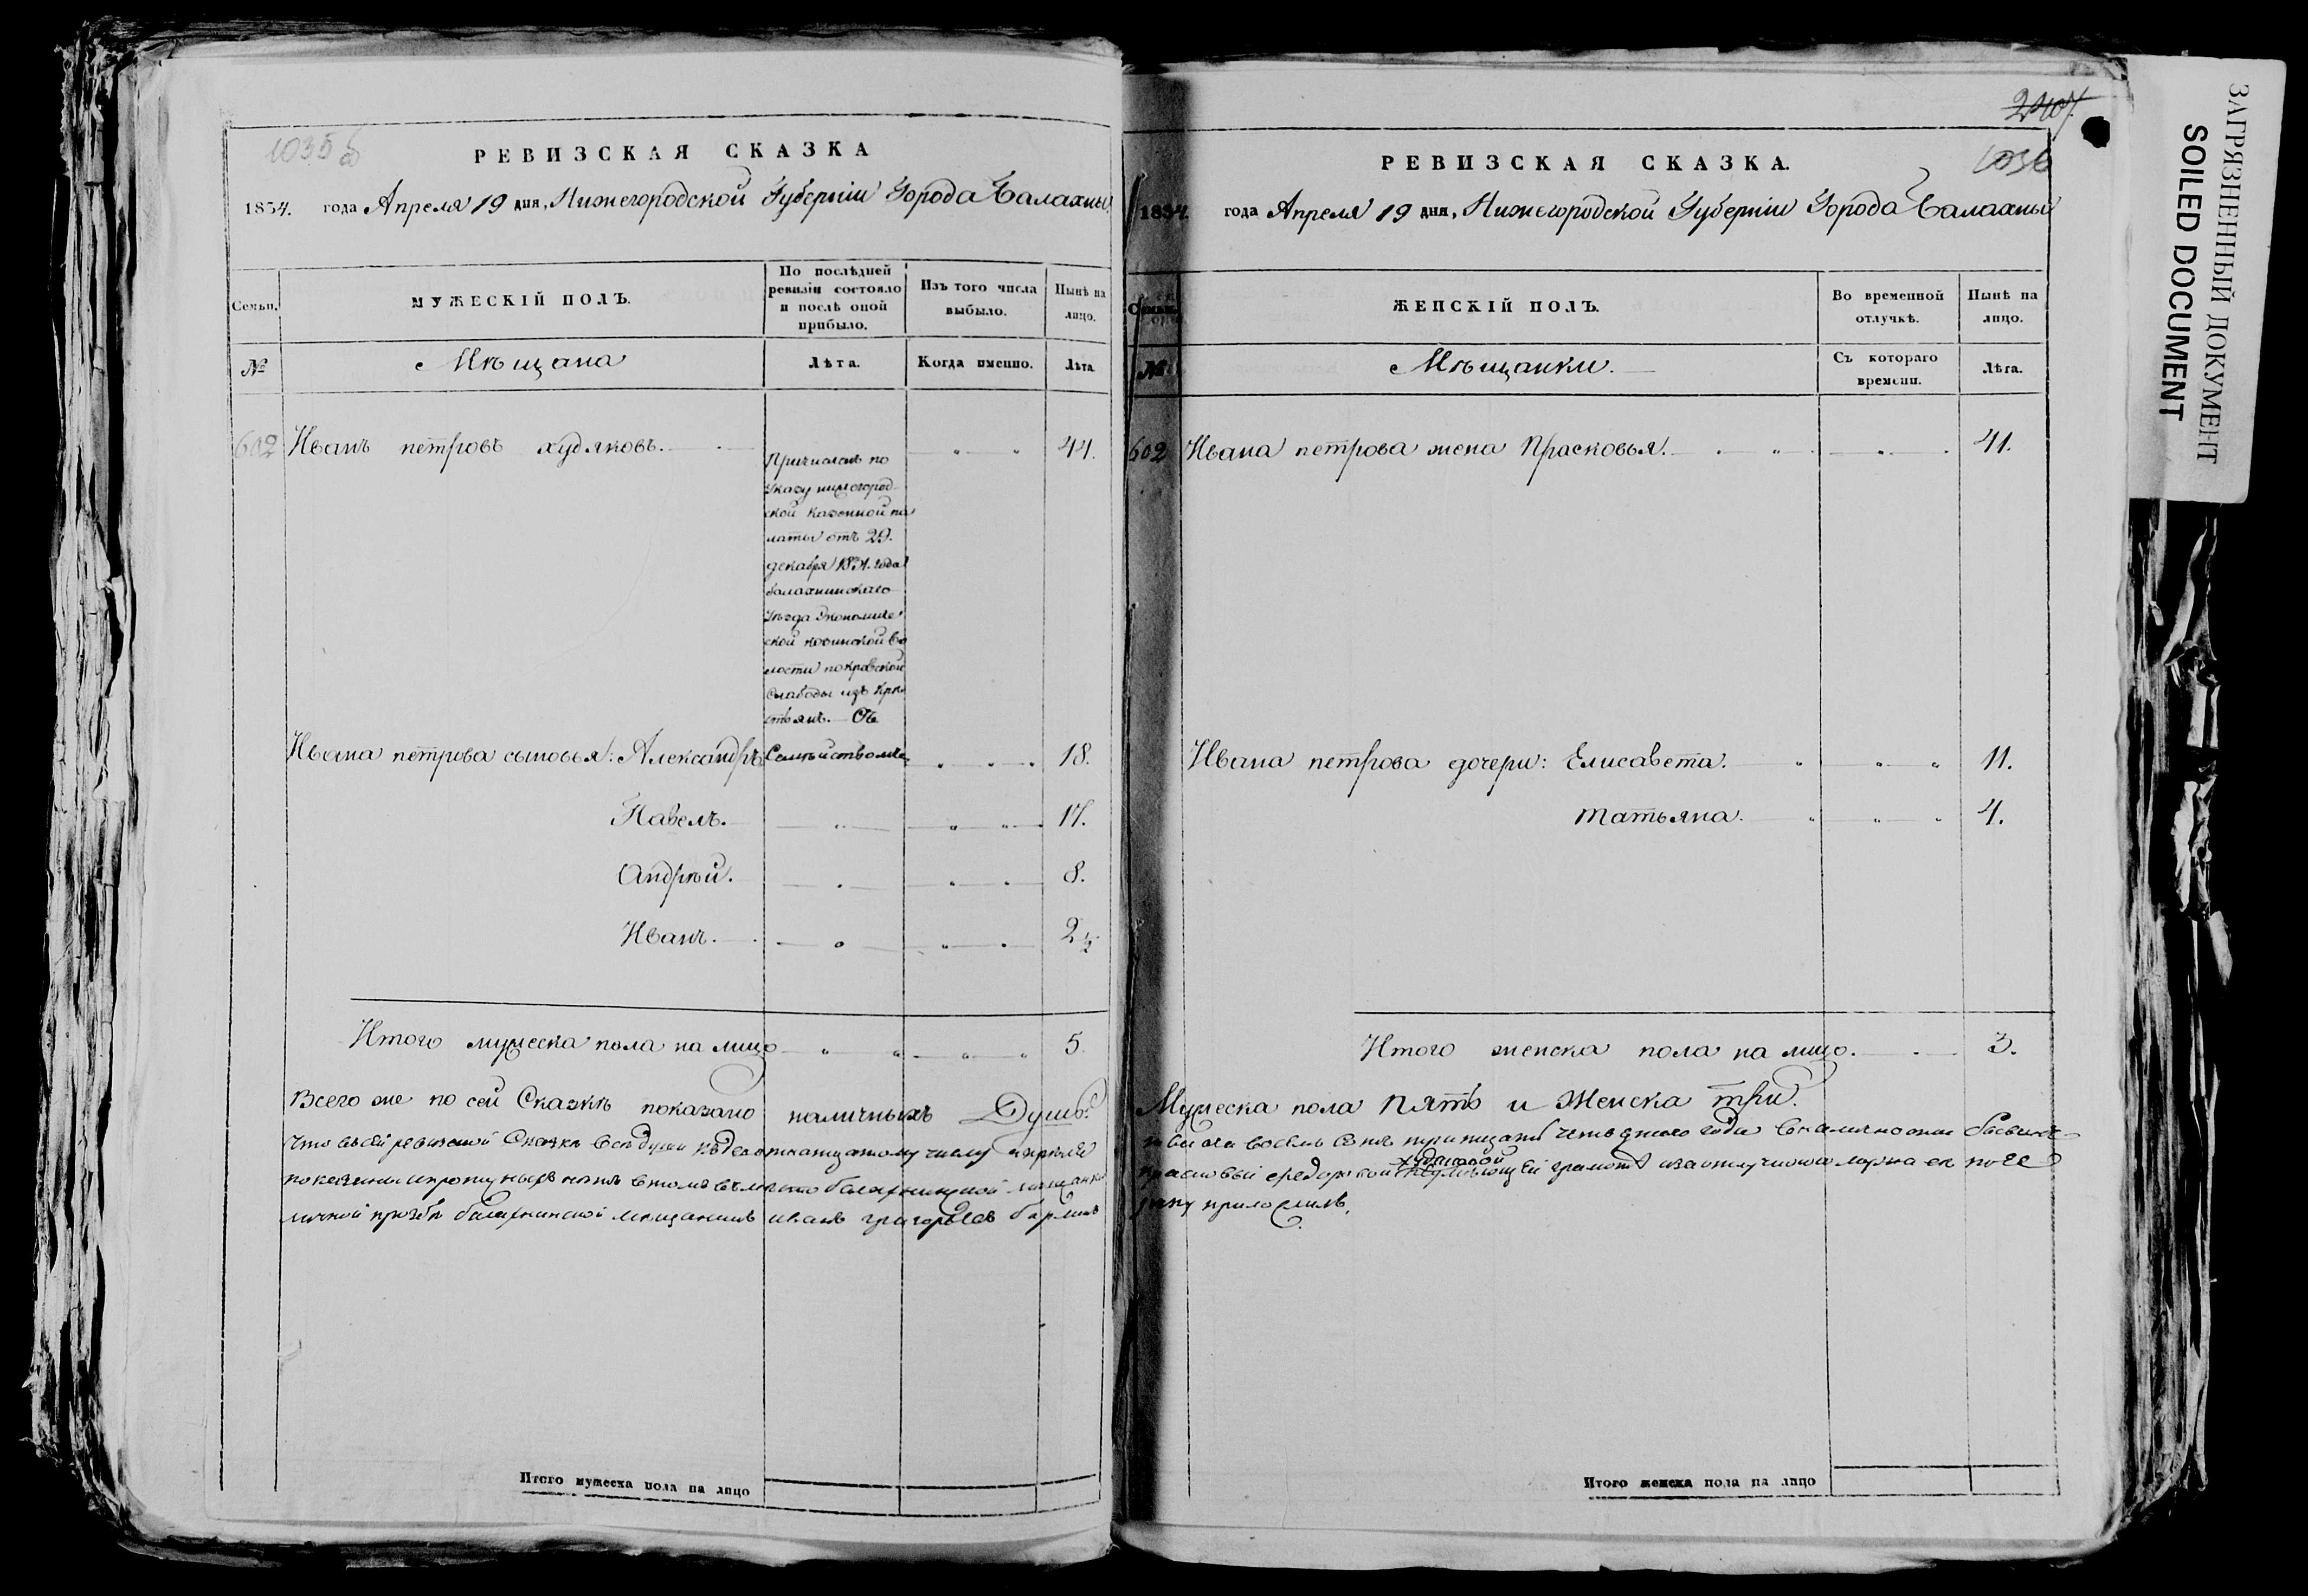 1035 об
РЕВИЗСКАЯ СКАЗКА
1834. года Апреля 19 дня, Нижегородской Губернiи Города Балахны
Семьи.
МУЖЕСКIЙ ПОЛЪ.
По послѣдней ревизiи состояло и послѣ оной прибыло.
Изъ того числа выбыло.
Нынѣ на лицо.
№
Мѣщана
Лѣта.
Когда именно.
Лѣта.
602 Иванъ петровъ худяковъ. 44.
Причисленъ по
указу нижегород-
ской казенной па
латы отъ 29.
декабря 1831. года
балахнинскаго
уѣзда Экономиче
ской козинской во
лости покровской
слабоды изъ крѣ
стьянъ. – Съ
Ивана петрова сыновья: Александръ Семѣйствомъ 18.
Павелъ. 17.
Андрѣй. 8.
Иванъ. 2 ½
Итого мужеска пола на лицо 5
Всего же по сей Сказкѣ показано наличныхъ Душъ:
что въ сей ревизской Сказкѣ всѣ души къ девятнатцатому числу апреля
личной прозбѣ балахнинской мещанинъ иванъ григорьевъ
Итого мужеска пола на лицо
2407.
1036
РЕВИЗСКАЯ СКАЗКА.
1834. года Апреля 19 дня, Нижегородской Губернiи Города Балахны
Семьи.
ЖЕНСКIЙ ПОЛЪ.
Во временной отлучкѣ.
Нынѣ на лицо.
№
Мѣщанки.
Съ котораго времени.
Лѣта.
602 Ивана петрова жена Прасковья. 41.
Ивана петрова дочери: Елисавета. 11.
Татьяна. 4.
Итого женска пола на лицо. 3.
Мужеска пола Пять и Женска три.
тысяча восемь сотъ тритцать четвертого года
худяковой
руку приложилъ.
Итого женска пола на лицо
ЗАГРЯЗНЕННЫЙ ДОКУМЕНТ
SOILED DOCUMENT